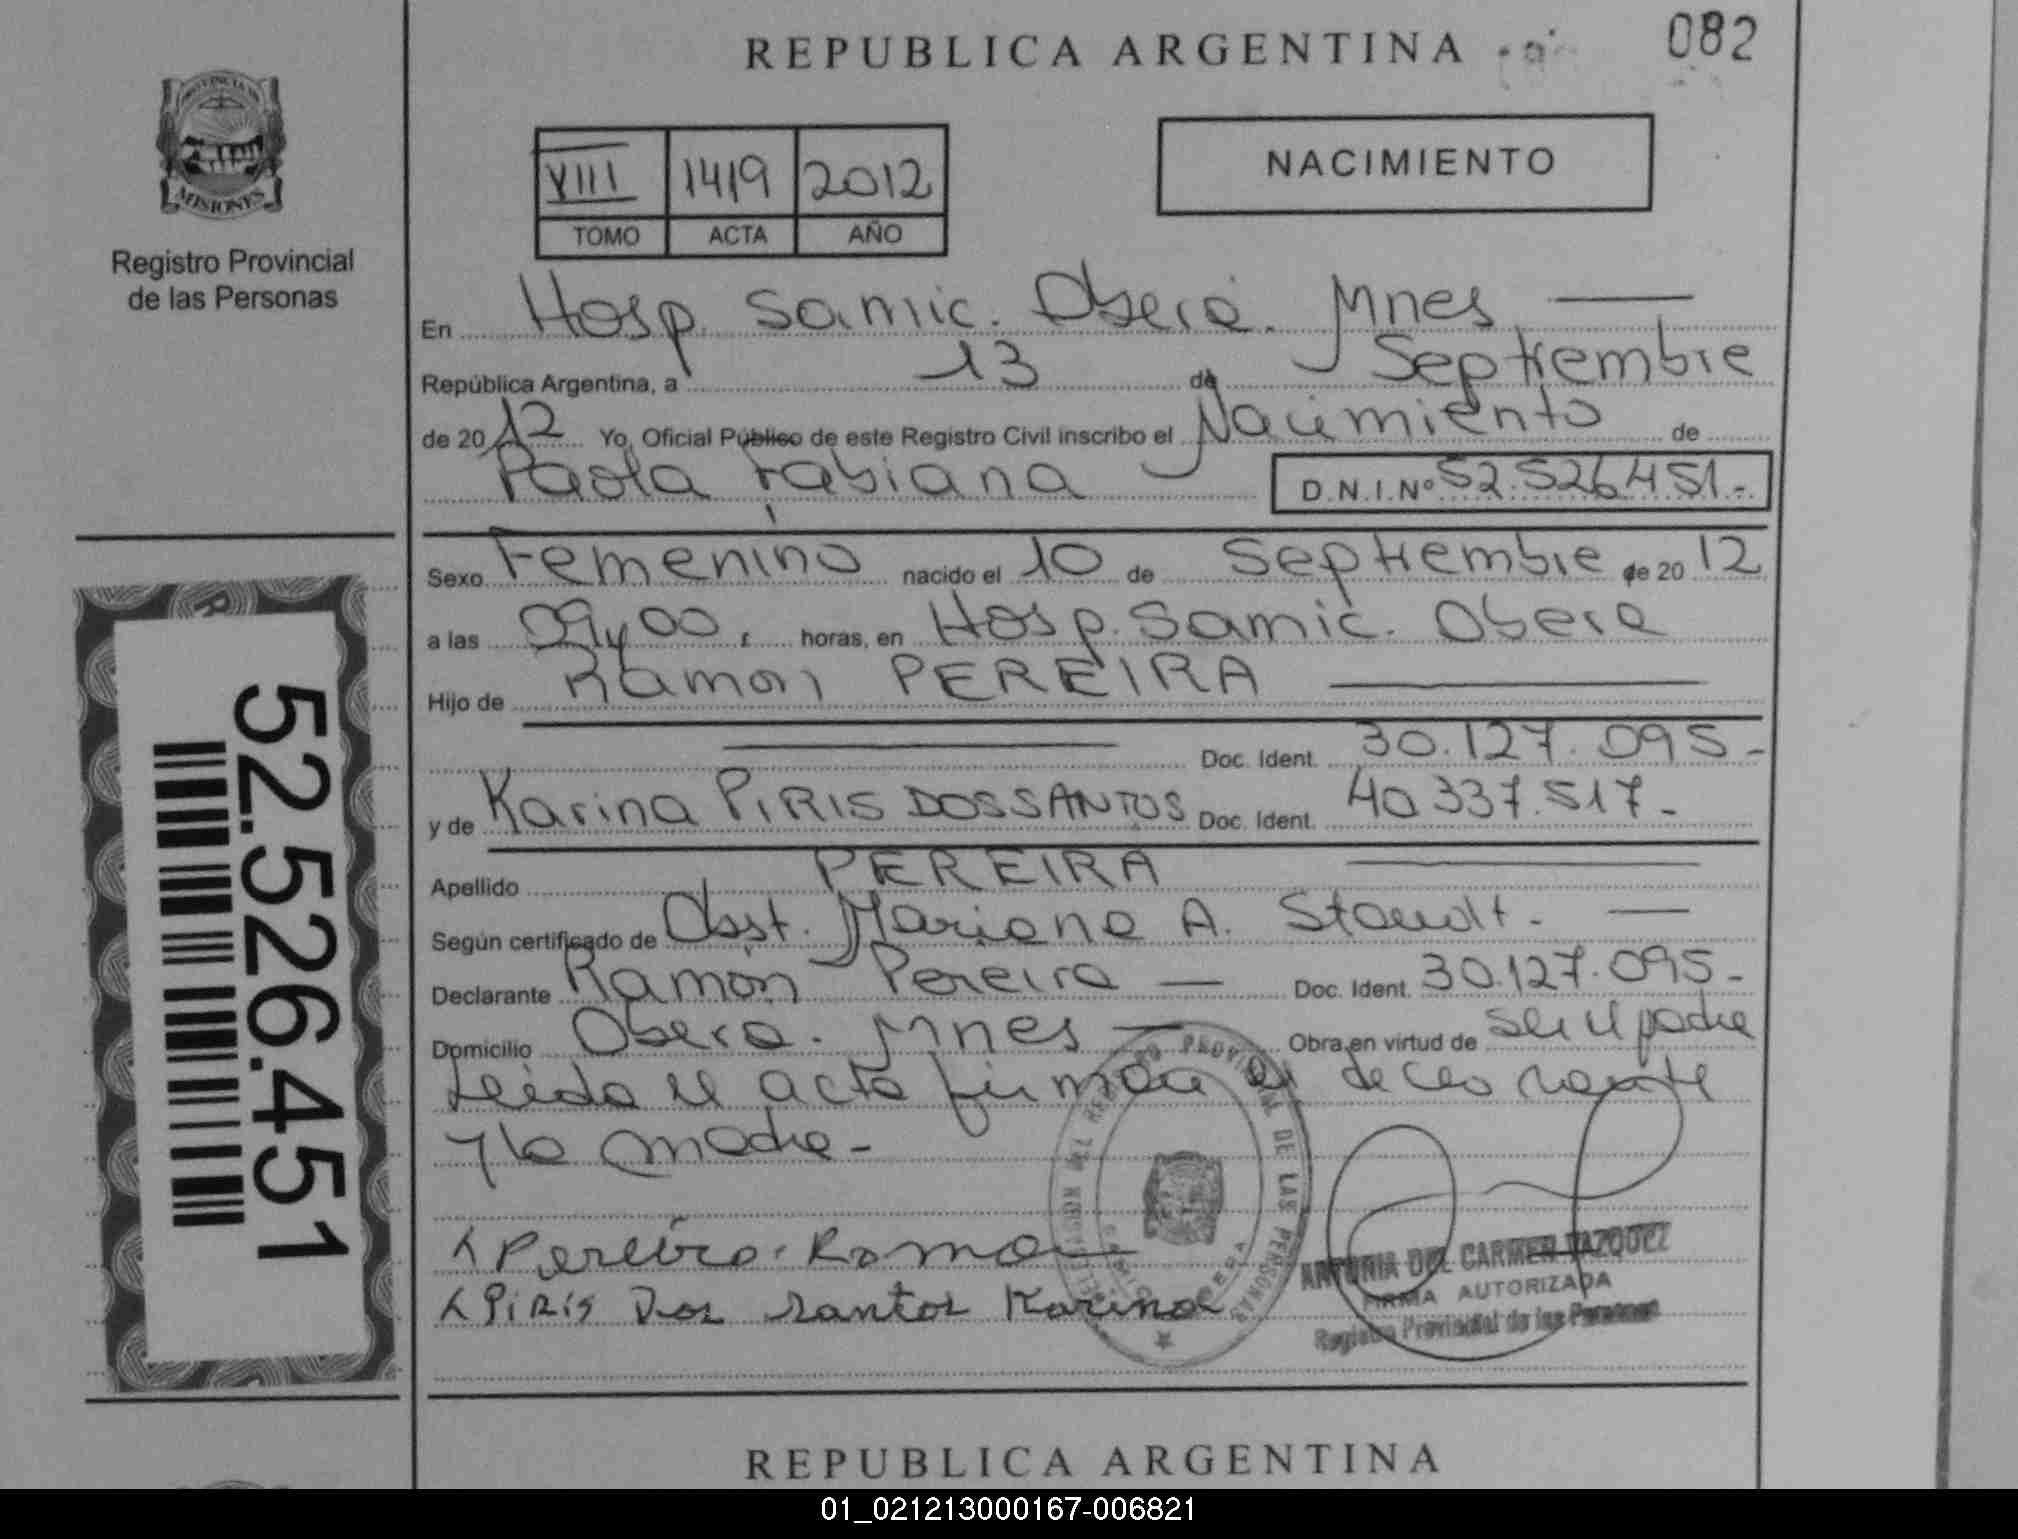 REPUBLICA ARGENTINA
082
PROVINCIA DE
MISIONES
Registro Provincial
de las Personas
VIII 1419 2012
TOMO ACTA AÑO
NACIMIENTO
En Hosp. Samic. Oberá. Mnes
República Argentina, a 13 de Septiembre
de 2012 Yo, Oficial Público de este Registro Civil inscribo el Nacimiento de
Paola Fabiana D.N.I.Nº 52.526.451.-
Sexo Femenino nacido el 10 de Septiembre de 2012
a las 09y00 horas, en Hosp. Samic. Obera
Hijo de Ramon PEREIRA
Doc. Ident. 30.127.095-
y de Karina PIRIS DOSSANTOS Doc. Ident. 40.337.517-
Apellido PEREIRA
Según certificado de Obst. Mariana A. Staudt.-
Declarante Ramón Pereira Doc. Ident. 30.127.095-
Domicilio Obera. Mnes Obra en virtud de ser el padre
Leida el acta firman el declarante
y la madre-
Pereira Ramon
Piris Dos Santos Karina
REGISTRO PROVINCIAL DE LAS PERSONAS
ANTONIA DEL CARMEN VAZQUEZ
FIRMA AUTORIZADA
Registro Provincial de las Personas
52.526.451
REPUBLICA ARGENTINA
01_021213000167-006821